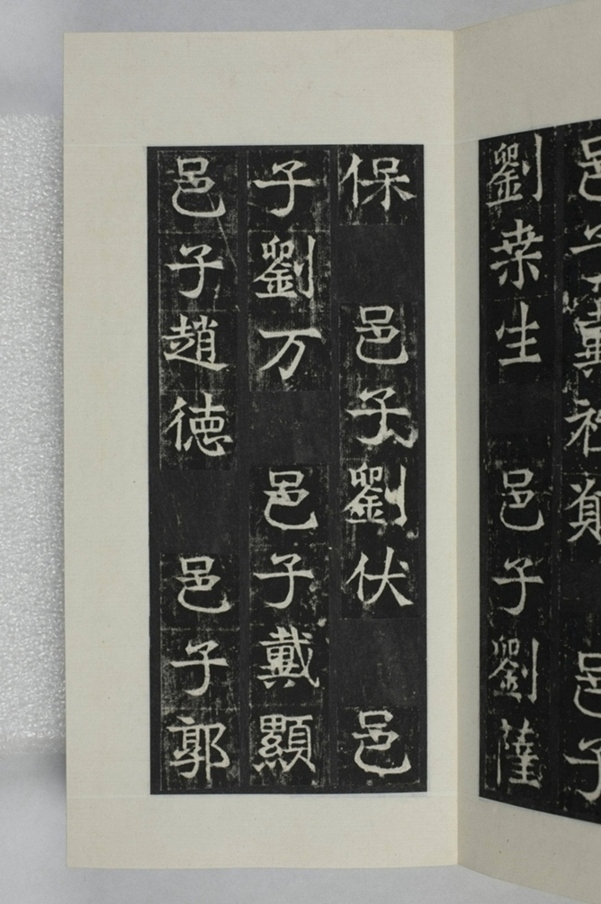 邑子戴社奠邑子
劉桒生邑子劉薩
保邑子劉伏邑
子劉万邑子戴顯
邑子趙德邑子郭